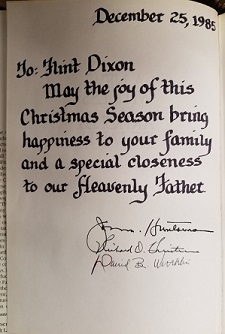 December 25, 1985
To: Flint Dixon
May the joy of this
Christmas Season bring
happiness to your family
and a special closeness
to our Heavenly Father
Richard O. Christensen
David B.